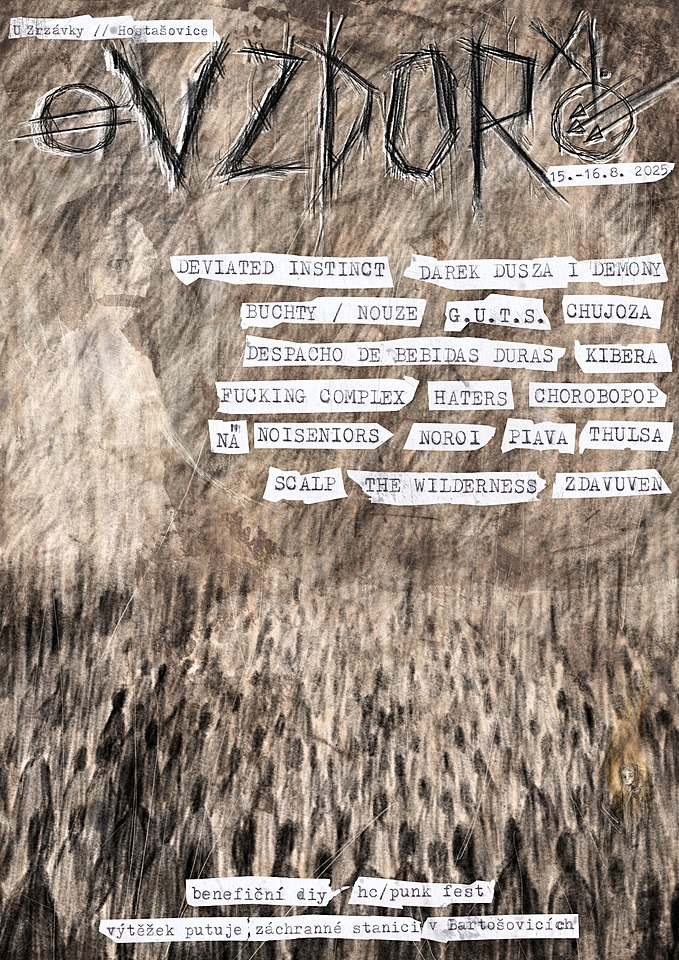 U Zrzávky // Hostašovice
VZDOR XL
15.-16.8. 2025
DEVIATED INSTINCT DAREK DUSZA I DEMONY
BUCHTY / NOUZE G.U.T.S. CHUJOZA
DESPACHO DE BEBIDAS DURAS KIBERA
FUCKING COMPLEX HATERS CHOROBOPOP
NÄ NOISENIORS NOROI PIAVA THUISA
SCALP THE WILDERNESS ZDAVUVEN
benefiční diy hc/punk fest
výtěžek putuje záchranné stanici v Bartošovicích